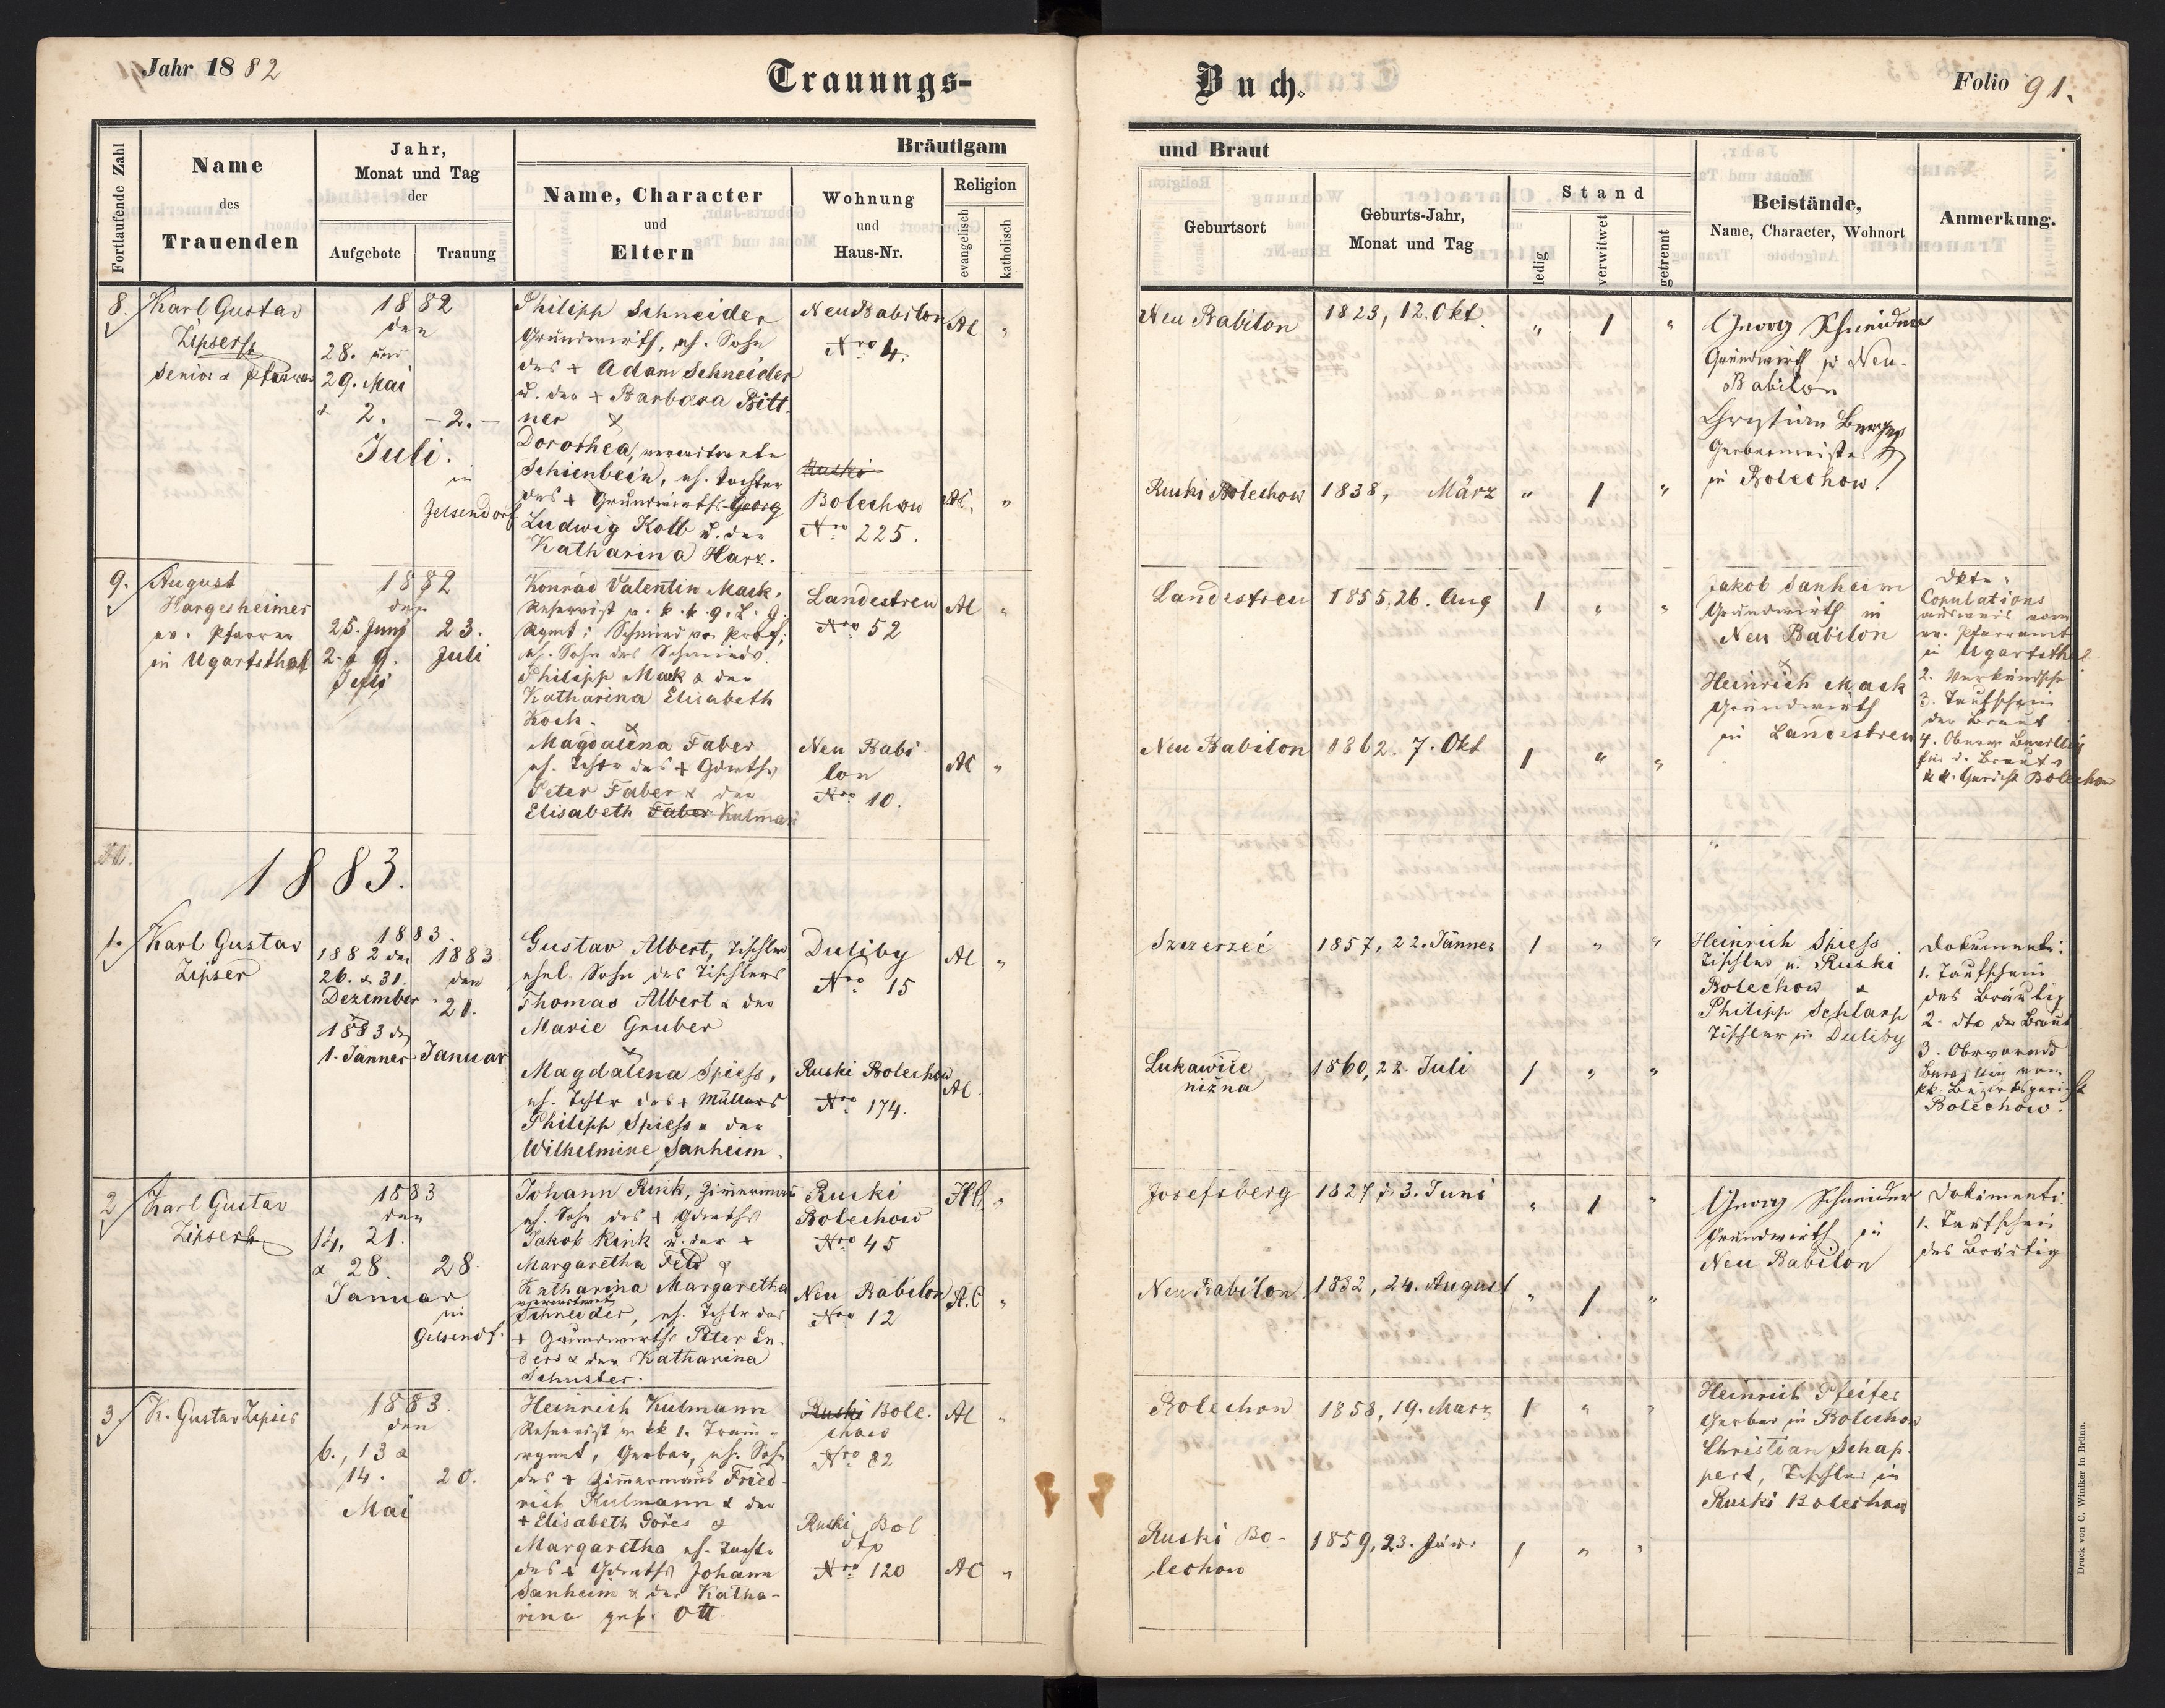 Jahr 1882
Trauungs-
Buch.
Folio 91.
Fortlaufende Zahl
Name
des
Trauenden
Jahr,
Monat und Tag
der
Aufgebote
Trauung
Bräutigam
Name, Character
und
Eltern
Wohnung
und
Haus-Nr.
Religion
evangelisch
katholisch
und Braut
Geburtsort
Geburts-Jahr,
Monat und Tag
Stand
ledig
verwitwet
getrennt
Beistände,
Name, Character, Wohnort
Anmerkung.
8.
Karl Gustav
Zipser
Senior & Pfarrer
1882
den
28. und
29. Mai
& 2. - 2. -
Juli.
in
Gelsendorf
Philipp Schneider
Grundwirth, eh. Sohn
des + Adam Schneider
u. der + Barbara Bitt-
ner &
Dorothea, verwitwete
Schienbein, eh. Tochter
des + Grundwirths Georg
Ludwig Kolb u. der
Katharina Harz.
Neu Babilon
Nro 4.
Ruski
Bolechow
Nro 225.
AC "
AC. "
Neu Babilon
1823, 12. Okt.
" 1 "
Ruski Bolechow
1838, März
" 1 "
Georg Schneider
Grundwirth in Neu-
Babilon
Christian Berger
Gerbermeister
in Bolechow
9.
August
Hargesheimer
ev. Pfarrer
in Ugartsthal
1882
den
25. Juni
2. & 9.
Juli
23.
Juli
Konrad Valentin Mack,
Reservist
eh. Sohn des Schmieds
Philipp Mack & der
Katharina Elisabeth
Koch.
&
Magdalena Faber
eh. Tchtr des + Gdwths
Peter Faber & der
Elisabeth Faber Kulman
Landestreu
Nro 52
Neu Babi
lon
Nro 10.
AC "
AC "
Landestreu
1855, 26. Aug
1 " "
Neu Babilon
1862. 7. Okt
1 " "
Jakob Sanheim
Grundwirth in
Neu Babilon
&
Heinrich Mack
Grundwirth
in Landestreu
Copulations
ausweis vom
ev. Pfarramt
in Ugartsthal
2. Verkündschein
3. Taufschein
der Braut
4. Oberv. Bewillig
für d. Braut v
kk. Gericht Bolechow
1883.
1.
Karl Gustav
Zipser
1883.
1882 den
26. & 31.
Dezember
&
1883 den
1. Jänner
1883
den
21.
Januar
Gustav Albert, Tischler
ehel. Sohn des Tischlers
Thomas Albert & der
Marie Gruber
&
Magdalena Spiess,
eh. Tchtr des + Müllers
Philipp Spiess & der
Wilhelmine Sanheim.
Duliby
Nro 15
Ruski Bolechow
Nro 174.
AC "
AC.
Szczerzeć
1857, 22. Jänner
1 " "
Lukawice
niżna
1860, 22. Juli
1 " "
Heinrich Spiess
Tischler in Ruski
Bolechow &
Philipp Schlarp
Tischler in Duliby
Dokumente:
1. Taufschein
des Bräutig
2. dto der Braut
3. Obervorm
Bewillig vom
kk. Bezirksgericht
Bolechow.
2
Karl Gustav
Zipser
1883
den
14, 21.
& 28.
Januar
28.
in
Gelsendf.
Johann Rink, Zimmermann
eh. Sohn des + Gdwths
Jakob Rink u. der +
Margaretha Feld &
Katharina Margaretha
verwitwet
Schneider, eh. Tchtr des
+ Grundwirths Peter En-
ders & der Katharina
Schuster.
Ruski
Bolechow
Nro 45
Neu Babilon
Nro 12
HC. "
A.C "
Josefsberg
1827, 3. Juni
" 1 "
Neu Babilon
1832, 24. August
" 1 "
Georg Schneider
Grundwirth in
Neu Babilon
Dokumente:
1. Taufschein
des Bräutig
3.
K. Gustav Zipser
1883.
den
6., 13 &
14.
Mai
20.
Heinrich Kulmann
Reservist in kk 1. Train-
rgmt, Gerber, eh. Sohn
des + Zimmermans Fried-
rich Kulmann & der
+ Elisabeth Göres &
Margaretha eh. Tocht.
des + Gdwths Johann
Sanheim & der Katha-
rina geb. Ott
Ruski Bole-
chow
Nro 82
Ruski Bol
dto
Nro 120
AC "
AC "
Bolechow
1858, 19. März
1 " "
Ruski Bo-
lechow
1859, 23. Jänn.
1 " "
Heinrich Pfeifer
Gerber in Bolechow
Christian Schap-
pert, Tischler in
Ruski Bolechow
Druck von C. Winiker in Brünn.